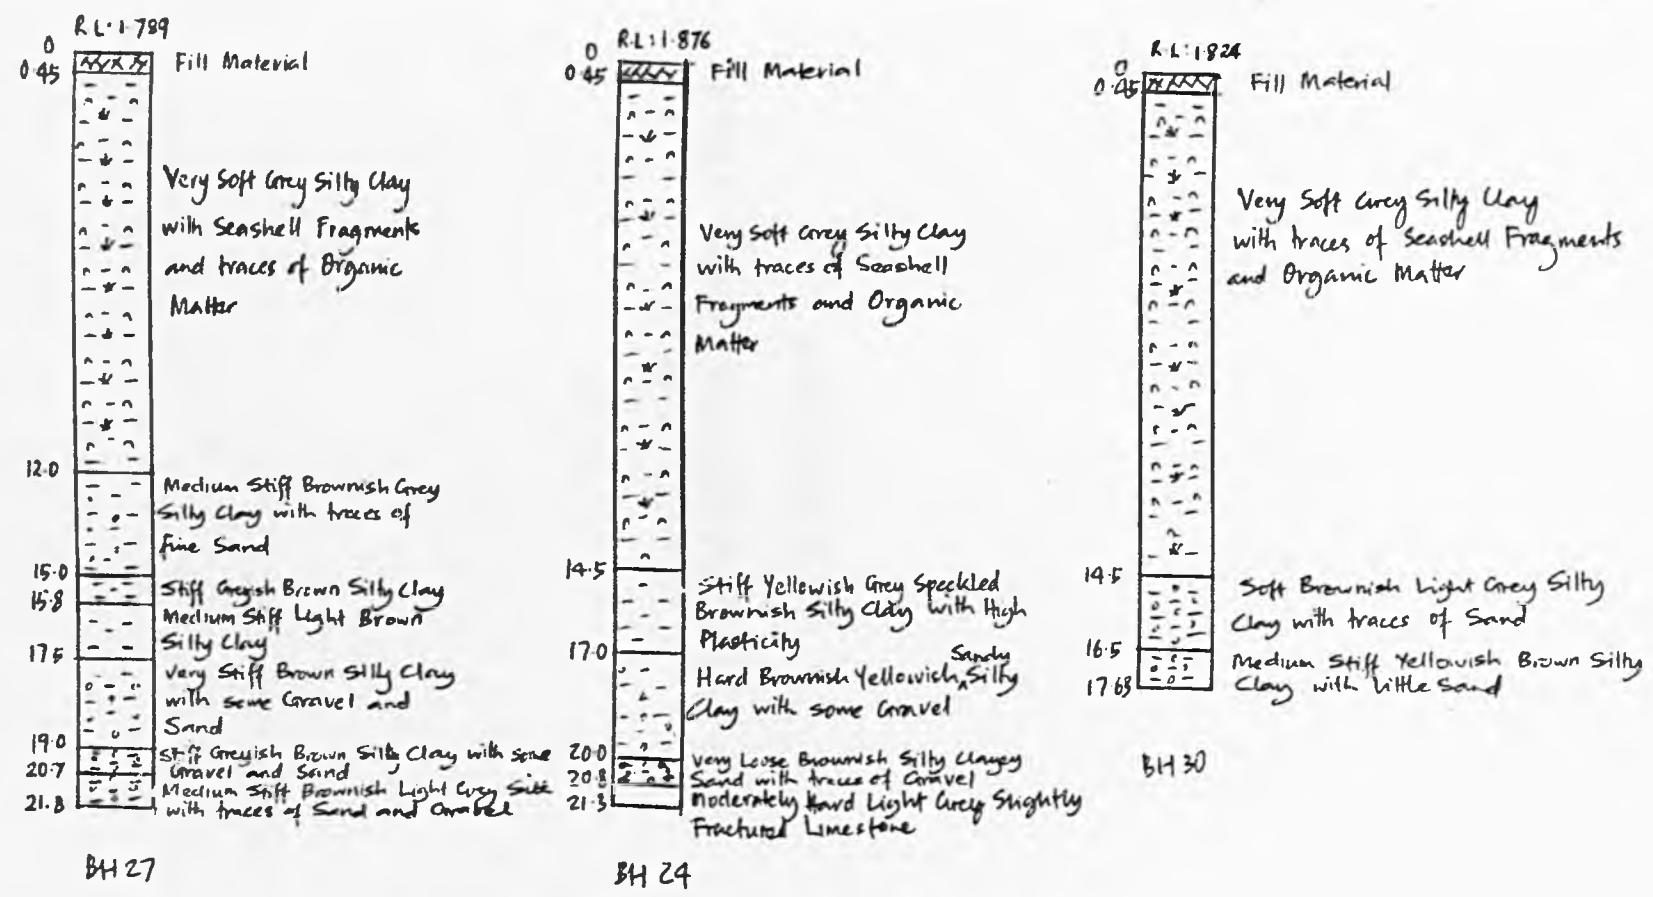 R.L: 1.789
0
0.45
Fill Material
Very Soft Grey Silty Clay
with Seashell Fragments
and traces of Organic
Matter
12.0
Medium Stiff Brownish Grey
Silty Clay with traces of
fine Sand
15.0
Stiff Greyish Brown Silty Clay
15.8
Medium Stiff Light Brown
Silty Clay
17.5
Very Stiff Brown Silty Clay
with some Gravel and
Sand
19.0
Stiff Greyish Brown Silty Clay with some
Gravel and Sand
20.7
Medium Stiff Brownish Light Grey Silt
with traces of Sand and Gravel
21.8
BH 27
R.L: 1.876
0
0.45
Fill Material
Very Soft Grey Silty Clay
with traces of Seashell
Fragments and Organic
Matter
14.5
Stiff Yellowish Grey Speckled
Brownish Silty Clay with High
Plasticity
17.0
Sandy
Hard Brownish Yellowish Silty
Clay with some Gravel
20.0
Very Loose Brownish Silty Clayey
Sand with traces of Gravel
20.8
Moderately Hard Light Grey Slightly
Fractured Limestone
21.3
BH 24
R.L: 1.824
0
0.45
Fill Material
Very Soft Grey Silty Clay
with traces of Seashell Fragments
and Organic Matter
14.5
Soft Brownish Light Grey Silty
Clay with traces of Sand
16.5
Medium Stiff Yellowish Brown Silty
Clay with little Sand
17.63
BH 30